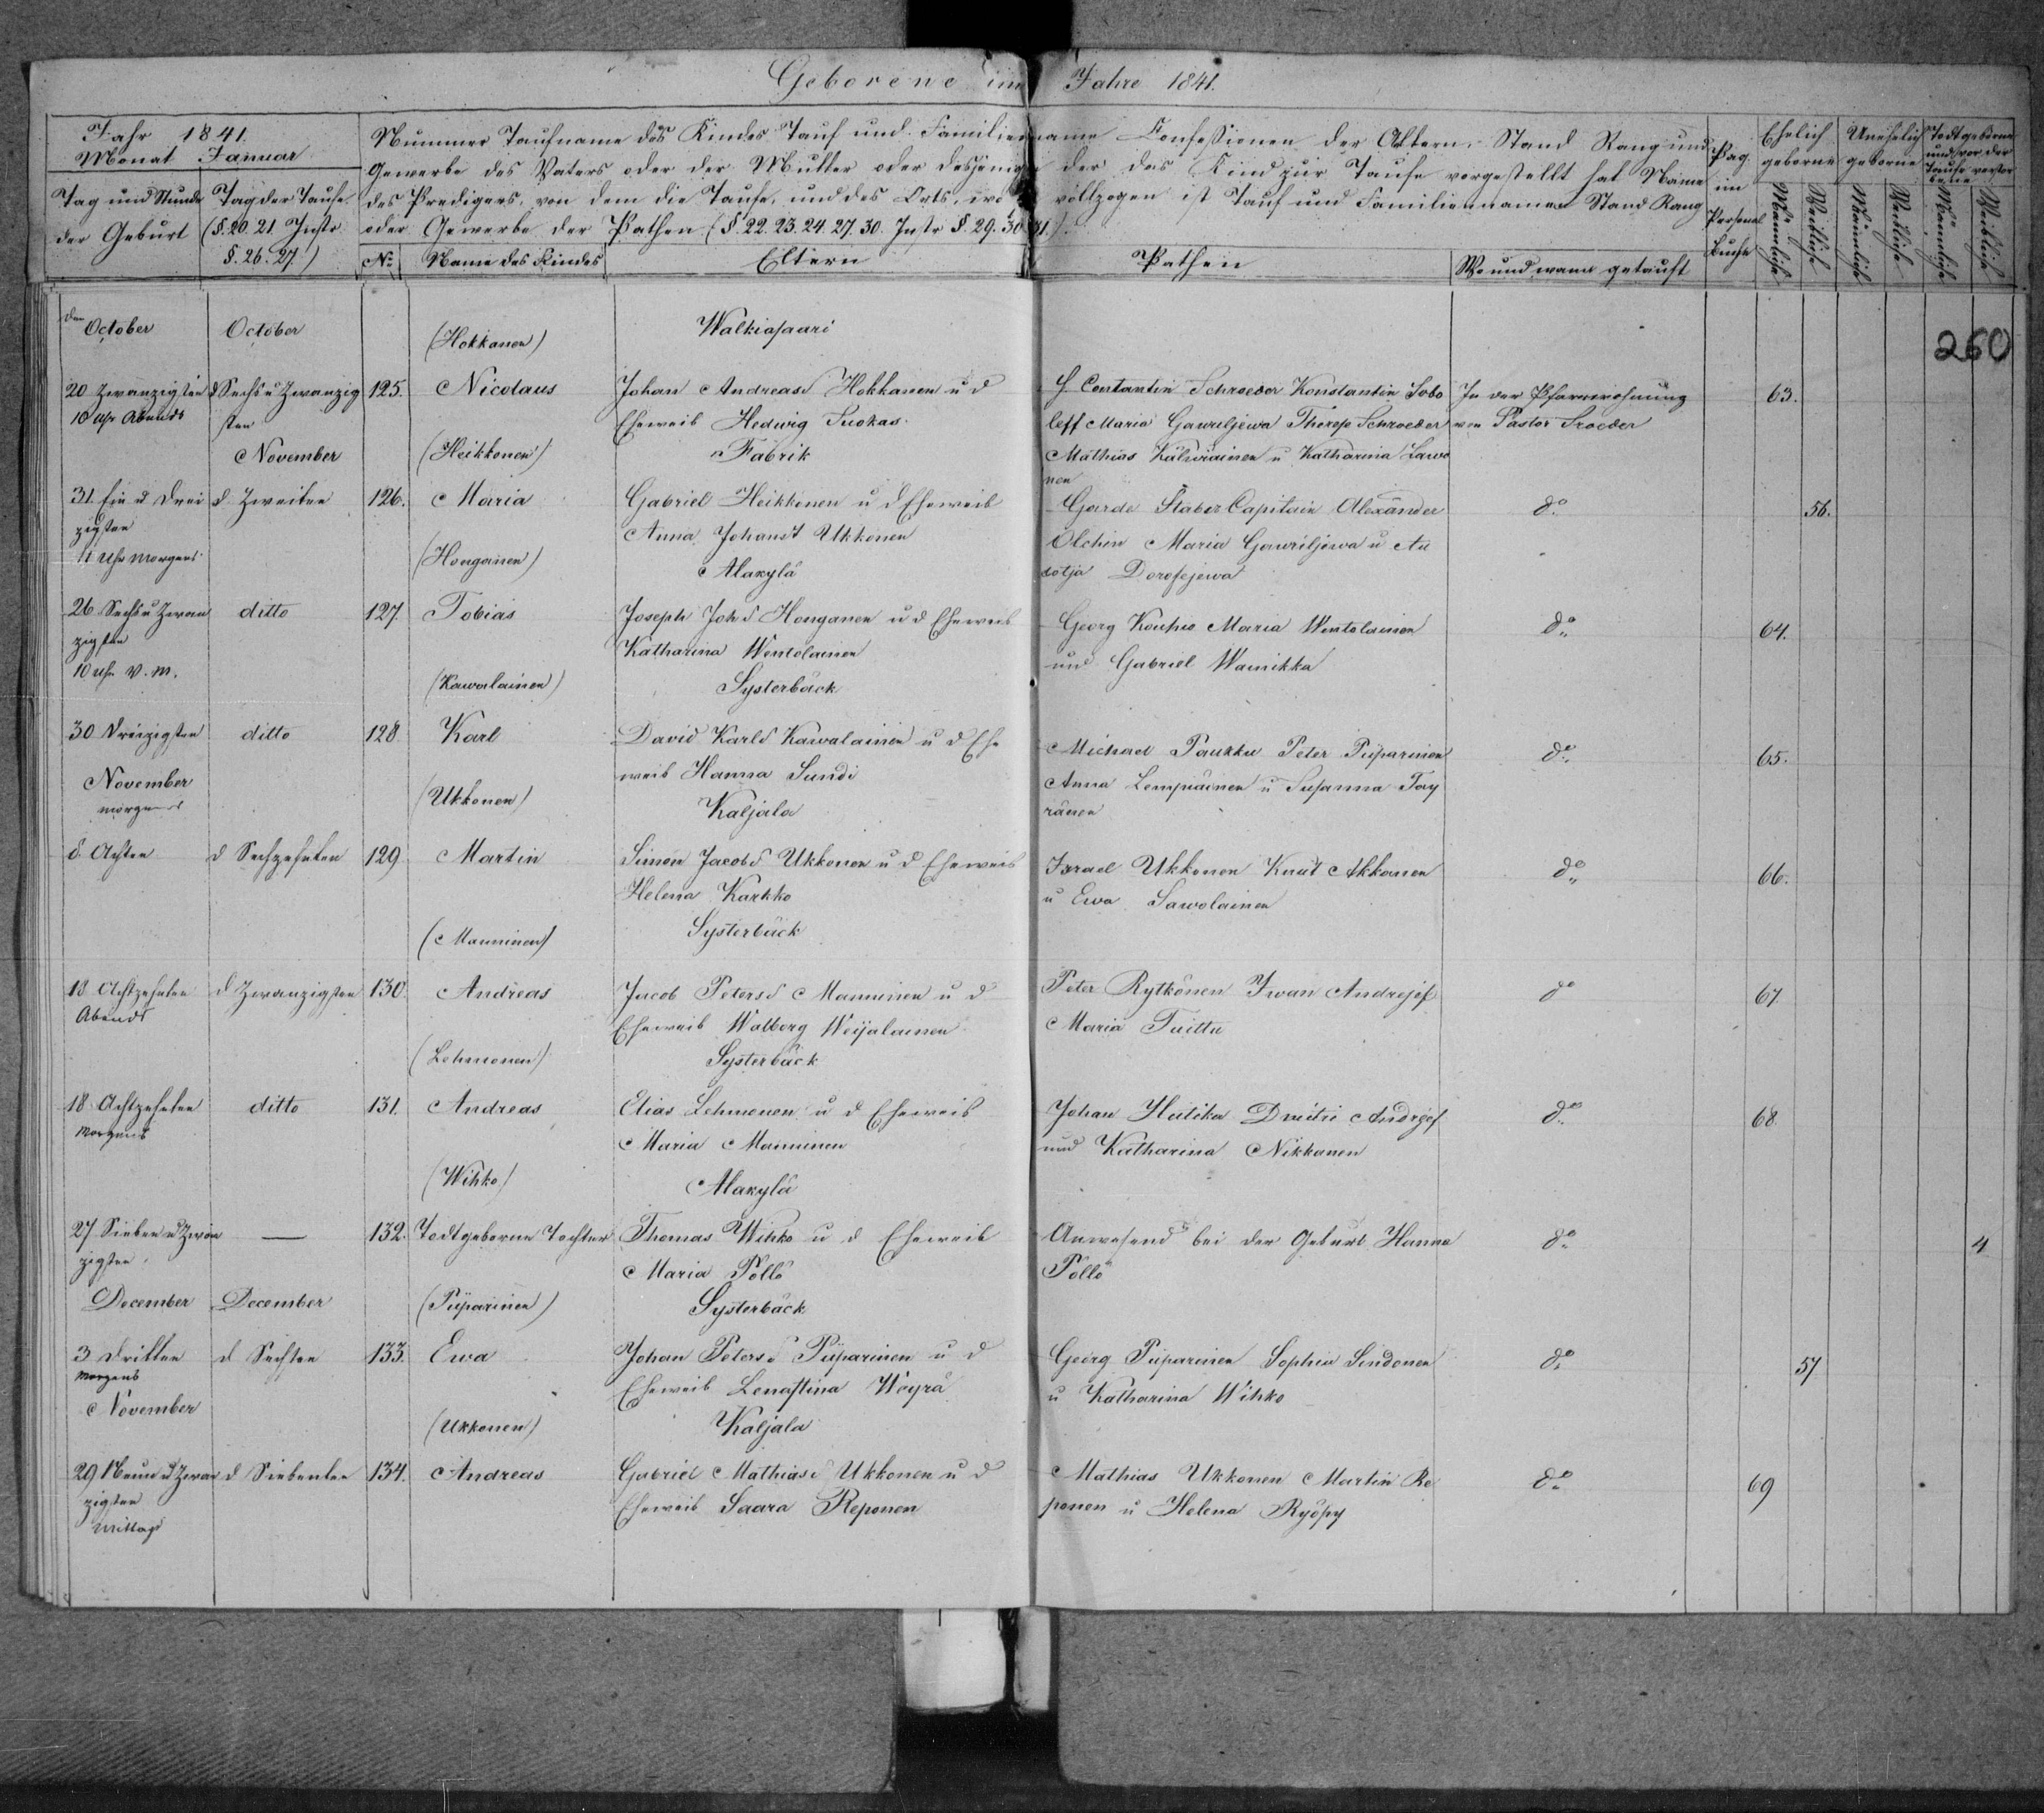 Geborene im Jahre 1841.
Jahr 1841.
Monat Januar
Tag und Stunde der Geburt
Tag der Taufe (§. 20. 21. Instr §. 26. 27)
Nummer Taufname des Kindes Tauf und Familienname Confessionen der Aeltern, Stand Rang und
Gewerbe des Vaters oder der Mutter oder desjenigen der das Kind zur Taufe vorgestellt hat Name
des Predigers, von dem die Taufe, und des Orts, wo sie vollzogen ist Tauf und Familienname Stand Rang
oder Gewerbe der Pathen (§ 22. 23. 24. 27. 30. Instr §. 29. 30. 31.)
No Name des Kindes Eltern Pathen Wo und wann getauft
Pag. im Personal Buche
Ehelich geborne Männliche Weibliche
Unehelich geborne Männliche Weibliche
Todtgeborne und vor der Taufe verstorbene Männliche Weibliche
260
den October October (Hokkanen) Walkiasaari
20 Zwanzigsten d Sechs u Zwanzig 125. Nicolaus Johan Andreasd Hokkanen u d
10 Uhr Abends sten Eheweib Hedwig Suokas
November (Heikkonen) Fabrik
Constantin Schroeder Konstantin Sobo In der Pfarrwohnung 63.
leff Maria Gawriljewa Schroeder von Pastor
Mathias u Katharina Sawo
nen
31. Ein u Drei d. Zweiten 126. Maria Gabriel Heikkonen u d Eheweib
zigsten Anna Johansd Ukkonen
11 Uhr Morgens (Honganen) Alakylä
Garde Stabes Capitain Alexander do 56.
Olchin Maria Gawriljewa u Au
dotja Dorofejewa
26. Sechs u Zwan ditto 127. Tobias Joseph Johd Honganen u d Eheweib
zigsten Katharina Wentolainen
10 Uhr V. M. (Kawalainen) Systerbäck
Georg Koupio Maria Wentolainen do 64.
und Gabriel Wainikka
30 Dreizigsten ditto 128 Karl David Karlsd Kawalainen u d Ehe
November weib Hanna Sundi
morgends (Ukkonen) Kaljala
Michael Paukku Peter Piiparinen do 65.
Anna Lempiäinen u Susanna Tay
ränen
8. Achten d Sechzehnten 129 Martin Simon Jacobsd Ukkonen u d Eheweib
Helena Karkko
(Manninen) Systerbäck
Israel Ukkonen Knut Akkanen do 66.
u Ewa Sawolainen
18 Achtzehnten d Zwanzigsten 130. Andreas Jacob Petersd Manninen u d
Abends Eheweib Walborg Weijalainen
(Lehmonen) Systerbäck
Peter Rytkönen Iwan Andrejef do 67
Maria Tuittu
18 Achtzehnten ditto 131. Andreas Elias Lehmonen u d Eheweib
Morgens Maria Manninen
(Wihko) Alakylä
Johan Dmitri Andrejef do 68
und Katharina Nikkanen
27 Sieben u Zwan — 132. Todtgeborne Tochter Thomas Wihko u d Eheweib
zigsten Maria Pöllö
December December (Piiparinen) Systerbäck
Anwesend bei der Geburt Hanna do 4
Pöllö
3 Dritten d Sechsten 133. Ewa Johan Petersd Piiparinen u d
Morgens Eheweib Lenastina Weyrä
November (Ukkonen) Kaljala
Georg Piiparinen Sophia Sindonen do 57
u Katharina Wihko
29 Neun u Zwan d Siebenten 134. Andreas Gabriel Mathiasd Ukkonen u d
zigsten Eheweib Saara Reponen
Mittags
Mathias Ukkonen Martin Re do 69
ponen u Helena Ryöpy